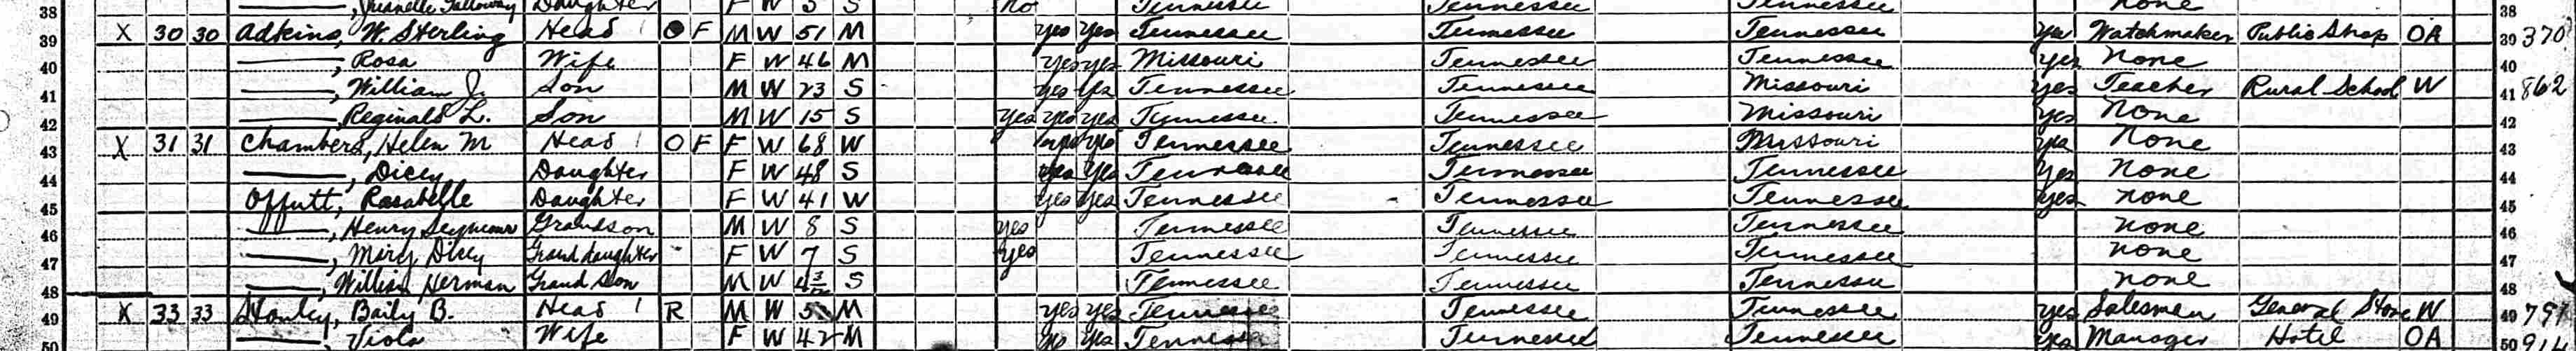 38 Juanelle Galloway Daughter F W 5 S no Tennessee Tennessee Tennessee none 38
39 X 30 30 Adkins, W. Sterling Head O F M W 51 M yes yes Tennessee Tennessee Tennessee yes Watchmaker Public Shop OA 39 370
40 ———, Rosa Wife F W 46 M yes yes Missouri Tennessee Tennessee yes None 40
41 ———, William J. Son M W 23 S yes yes Tennessee Tennessee Missouri yes Teacher Rural School W 41 862
42 ———, Reginald L. Son M W 15 S yes yes yes Tennessee Tennessee Missouri yes None 42
43 X 31 31 Chambers, Helen M Head O F F W 68 W yes yes Tennessee Tennessee Missouri yes None 43
44 ———, Dicey Daughter F W 48 S yes yes Tennessee Tennessee Tennessee yes None 44
45 Offutt, Rosabelle Daughter F W 41 W yes yes Tennessee Tennessee Tennessee yes none 45
46 ———, Henry Seymour Grandson M W 8 S yes Tennessee Tennessee Tennessee none 46
47 ———, Mary Dicey Grand daughter F W 7 S yes Tennessee Tennessee Tennessee none 47
48 ———, William Herman Grand Son M W S Tennessee Tennessee Tennessee none 48
49 X 33 33 Stanley, Baily B. Head R M W M yes yes Tennessee Tennessee Tennessee yes Salesman General Store W 49
50 ———, Viola Wife F W 42 M yes yes Tennessee Tennessee Tennessee yes Manager Hotel OA 50